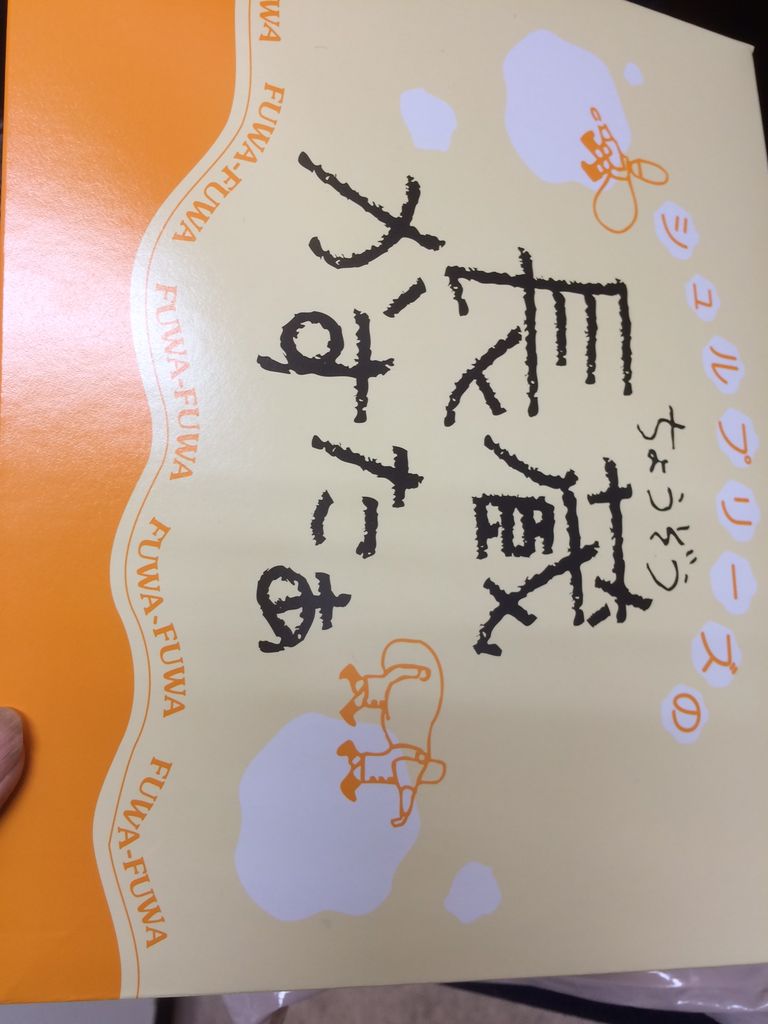 シュルプリーズの
ちょうぞう
長蔵
かすたあ
FUWA-FUWA FUWA-FUWA FUWA-FUWA FUWA-FUWA FUWA-FUWA